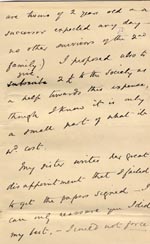 are hours of 2 year old as a
successor expected any day -
no other survivors of the 2nd
family) I proposed also to
give
subscribe 2£ to the Society as
a help towards this expense,
though I know it is only
a small part of what it
wd cost.
My sister writes her great
disappointment that I failed
to get the papers signed - I
can only reassure you I did
my best. - I could not force